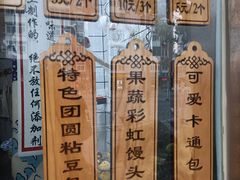 5元/2个
10元/3个
5元/2个
制作的
味道
绝不放任何添加剂
特色团圆粘豆
果蔬彩虹馒头
可爱卡通包